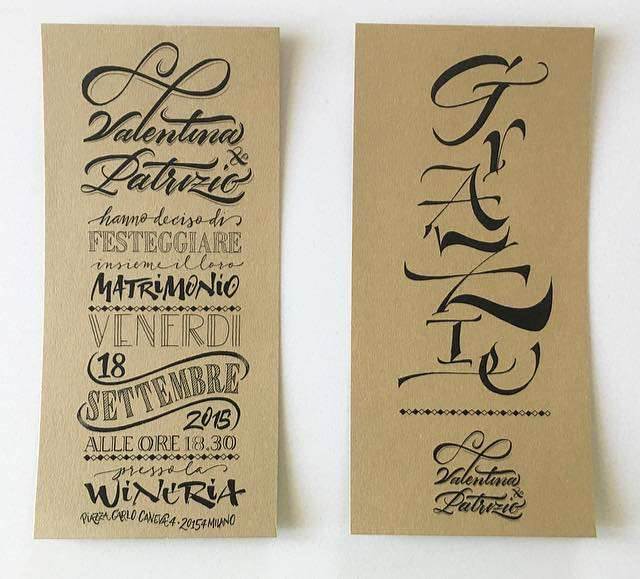 Valentina
&
Patrizio
hanno deciso di
FESTEGGIARE
insieme il loro
MATRIMONIO
VENERDI
18
SETTEMBRE
2015
ALLE ORE 18.30
presso la
WINERIA
PIAZZA CARLO CANEVA 4 • 20154 MILANO
GrAZIe
Valentina
&
Patrizio